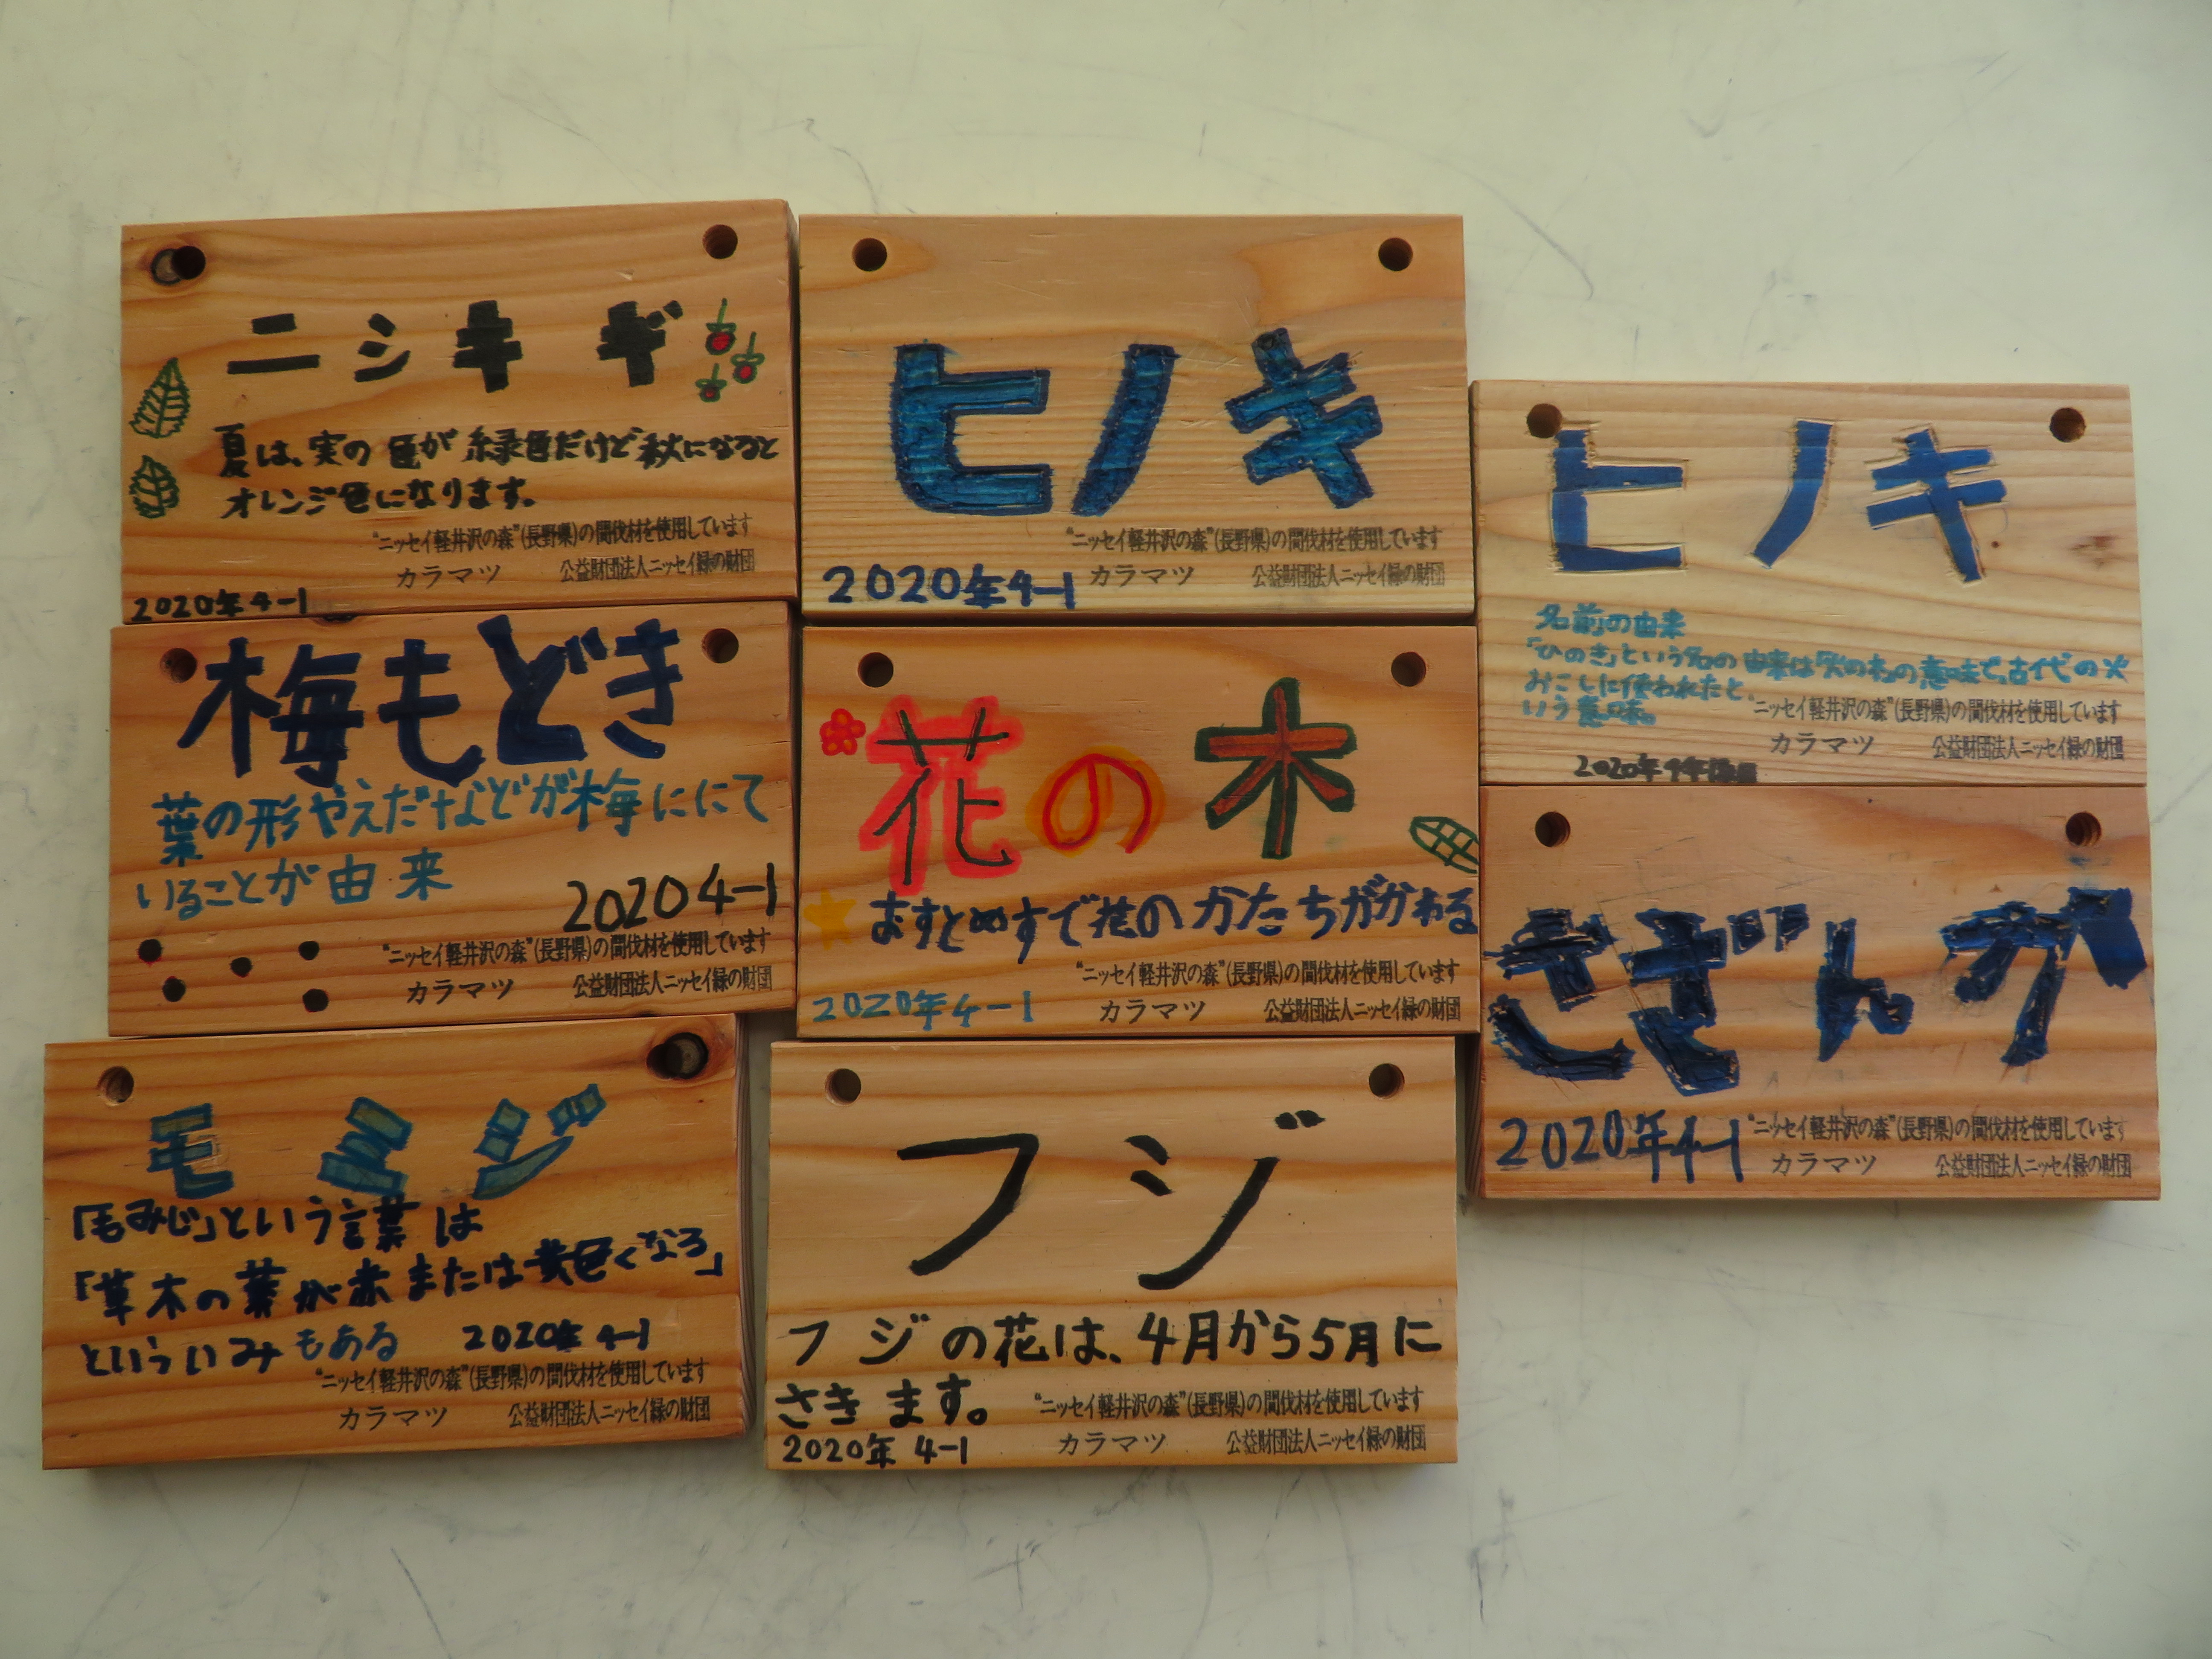 ニシキギ
夏は、実の色が緑色だけど秋になると
オレンジ色になります。
"ニッセイ軽井沢の森"(長野県)の間伐材を使用しています
カラマツ 公益財団法人ニッセイ緑の財団
2020年4-1
ヒノキ
"ニッセイ軽井沢の森"(長野県)の間伐材を使用しています
2020年4-1 カラマツ 公益財団法人ニッセイ緑の財団
ヒノキ
名前の由来
「ひのき」という名の由来は火の木の意味で、古代の火
おこしに使われたと
いう意味。
"ニッセイ軽井沢の森"(長野県)の間伐材を使用しています
カラマツ 公益財団法人ニッセイ緑の財団
2020年4年
梅もどき
葉の形やえだなどが梅ににて
いることが由来
2020 4-1
"ニッセイ軽井沢の森"(長野県)の間伐材を使用しています
カラマツ 公益財団法人ニッセイ緑の財団
花の木
おすとめすで花のかたちがかわる
"ニッセイ軽井沢の森"(長野県)の間伐材を使用しています
2020年4-1 カラマツ 公益財団法人ニッセイ緑の財団
さざんか
2020年4-1 "ニッセイ軽井沢の森"(長野県)の間伐材を使用しています
カラマツ 公益財団法人ニッセイ緑の財団
モミジ
「もみじ」という言葉は
「草木の葉が赤または黄色くなる」
といういみもある 2020年4-1
"ニッセイ軽井沢の森"(長野県)の間伐材を使用しています
カラマツ 公益財団法人ニッセイ緑の財団
フジ
フジの花は、4月から5月に
さきます。
"ニッセイ軽井沢の森"(長野県)の間伐材を使用しています
2020年4-1 カラマツ 公益財団法人ニッセイ緑の財団